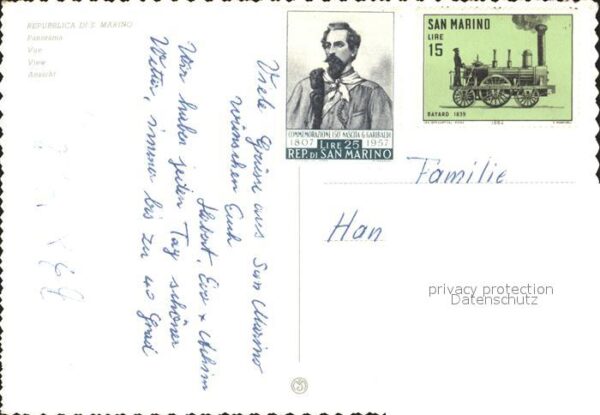 REPUBBLICA DI S. MARINO
Panorama
Vue
View
Ansicht
Viele Grüße aus San Marino
wünschen Euch
Herbert, Eva + Achim
Wir haben jeden Tag schönes
Wetter, immer bis zu 40 Grad
COMMEMORAZIONE 150° NASCITA G. GARIBALDI
1807 LIRE 25 1957
REP. DI SAN MARINO
SAN MARINO
LIRE
15
BAYARD 1839
1964
Familie
Han
privacy protection
Datenschutz